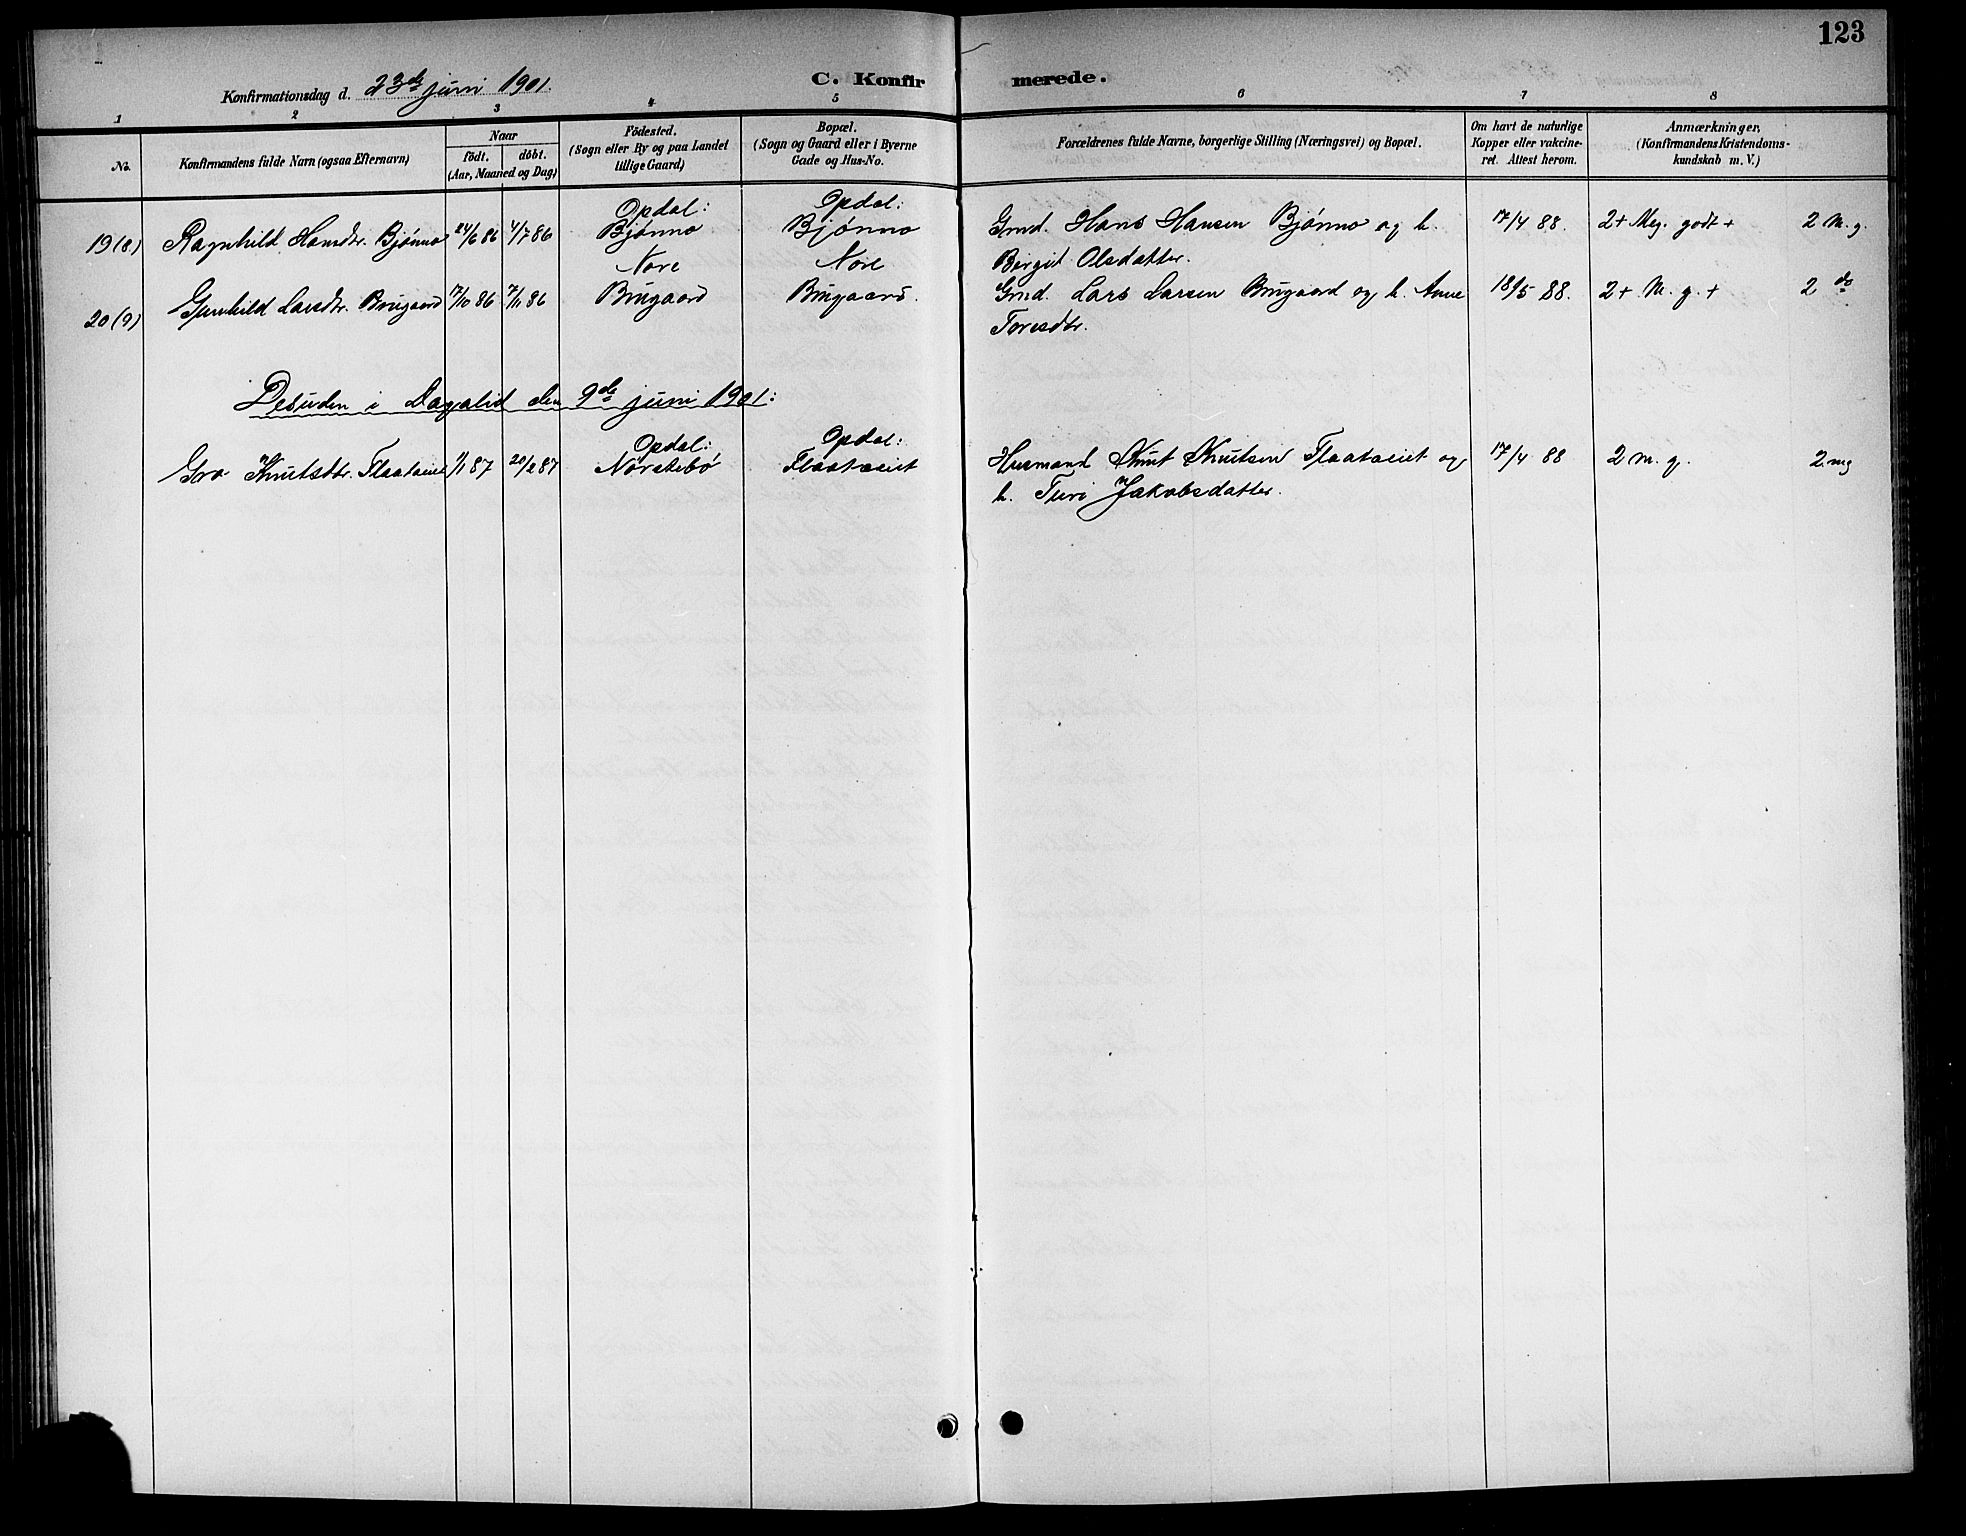 123
Konfirmationsdag d. 23de juni 1901.
C. Konfirmerede.
1 2 3 4 5 6 7 8
No.
Konfirmandens fulde Navn (ogsaa Efternavn)
Naar
födt. döbt.
(Aar, Maaned og Dag)
Födested.
(Sogn eller By og paa Landet
tillige Gaard)
Bopæl.
(Sogn og Gaard eller i Byerne
Gade og Hus-No.
Forældrenes fulde Navne, borgerlige Stilling (Næringsvei) og Bopæl.
Om havt de naturlige
Kopper eller vakcine-
ret. Attest herom.
Anmærkninger,
(Konfirmandens Kristendoms-
kundskab m. V.)
Opdal: Opdal:
19(8) Ragnhild Hansdtr. Bjönno 24/6 86 4/7 86 Bjönno Bjönno Gmd. Hans Hansen Bjönno og h. 17/4 88. 2+ Meg. godt + 2 M. g.
Birgit Olsdatter.
Nore Nore
20(9) Gunhild Larsdtr. Brugaard 17/10 86 7/11 86 Brugaard Brugaard. Gmd. Lars Larsen Brugaard og h. Anne 18/5 88. 2+ M. g. + 2 do
Toresdtr.
Desuden i Dagalid den 9de juni 1901:
Opdal: Opdal:
Gro Knutsdtr. Flaataeiet 1/1 87 20/2 87 Nörstebö Flaataeiet Husmand Knut Knutsen Flaataeiet og 17/4 88 2 m. g. 2 mg
h. Turi Jakobsdatter.